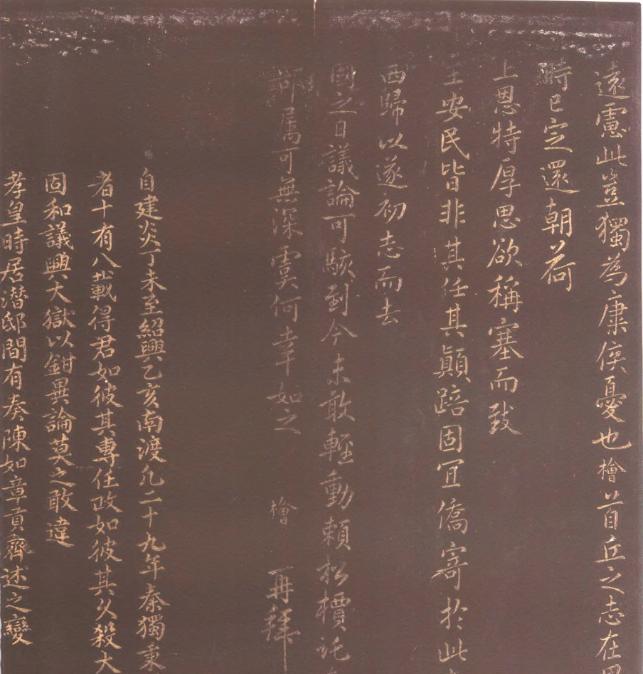 遠慮此豈獨為康侯憂也檜首丘之志在
時已定還朝荷
上恩特厚思欲稱塞而致
主安民皆非其任其顛踣固宜僑寄於此
西歸以遂初志而去
國之日議論可駭到今未敢輕動賴松檟託
鄰屬可無深虞何幸如之 檜 再拜
自建炎丁未至紹興乙亥南渡凡二十九年秦獨秉
者十有八載得君如彼其專任政如彼其久殺大
固和議興大獄以鉗異論莫之敢違
孝皇時居潛邸間有奏陳如章貢齊述之變